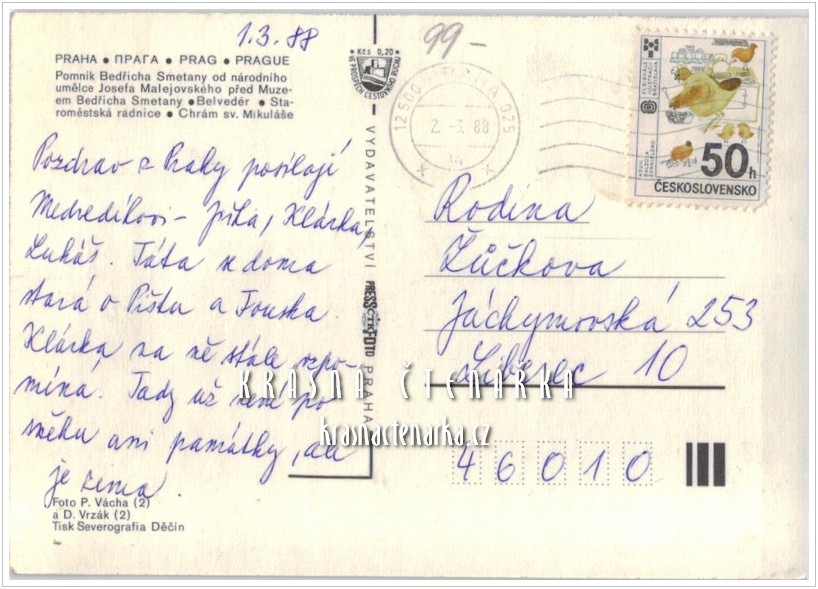 1.3.88
99-
PRAHA • ПРАГА • PRAG • PRAGUE
Pomník Bedřicha Smetany od národního
umělce Josefa Malejovského před Muze-
em Bedřicha Smetany • Belvedér • Sta-
roměstská radnice • Chrám sv. Mikuláše
Pozdrav z Prahy posílají
Medvedíkovi - Jiřka, Klárka,
Lukáš. Táta se doma
stará o Píštu a Fouska
Klárka na ně stále vzpo-
míná. Tady už není po
sněhu ani památky, ale
je zima.
Foto P. Vácha (2)
a D. Vrzák (2)
Tisk Severografia Děčín
Kčs 0,20
VE PROSPĚCH CESTOVNÍHO RUCHU
VYDAVATELSTVÍ PRESSFOTO PRAHA
ČTK
12500 PRAHA 025
2.-3.88
14
50h
ČESKOSLOVENSKO
Rodina
Žůčkova
Jáchymovská 253
Liberec 10
46010
KRÁSNÁ ČTENÁŘKA
krasnactenarka.cz